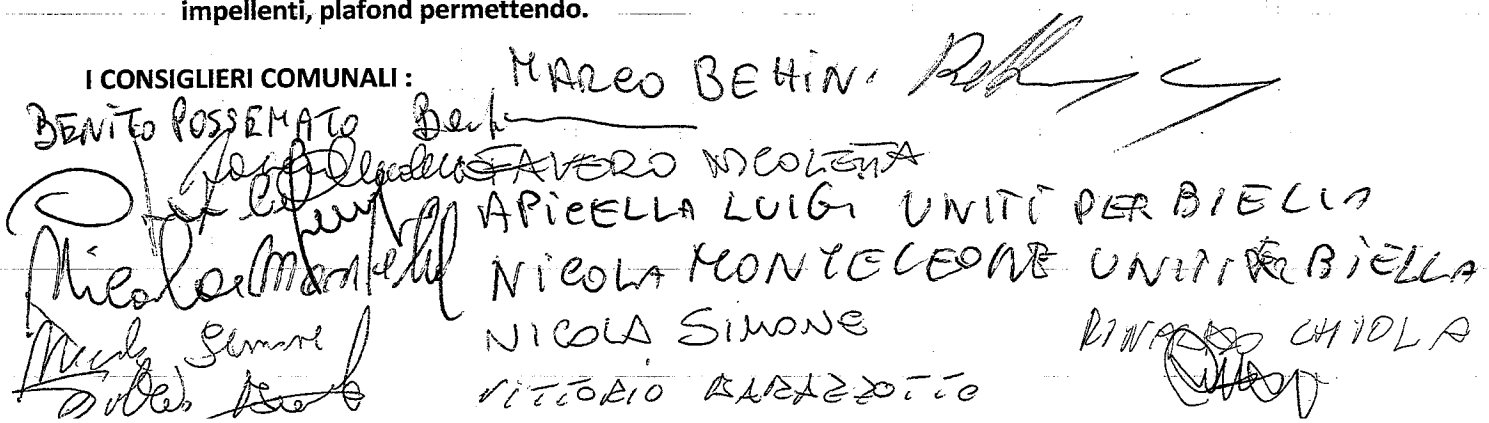 impellenti, plafond permettendo.
I CONSIGLIERI COMUNALI : MARCO BEHINI
BENITO POSSEMATO
FAVERO NICOLETTA
APICELLA LUIGI UNITI PER BIELLA
NICOLA MONTELEONE UNITI PER BIELLA
Nicola Simone NICOLA SIMONE RINALDO CHIOLA
VITTORIO BARAZZOTTO